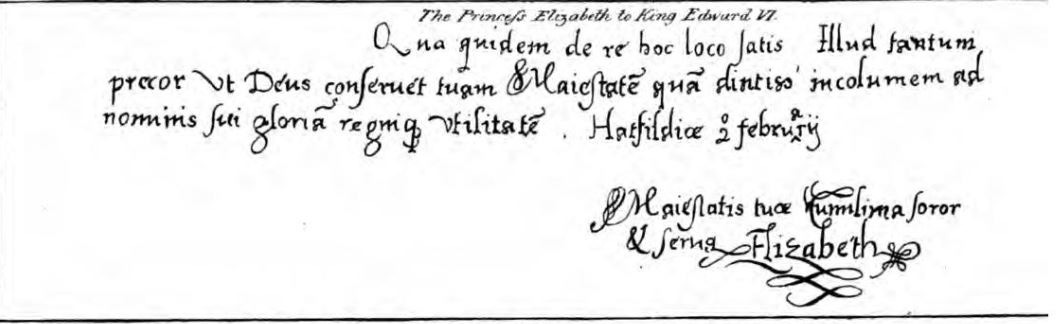 The Princeſs Elizabeth to King Edward VI.
Qua quidem de re hoc loco ſatis Illud tantum
precor Vt Deus conſeruet tuam Maieſtatē quā diutiss' incolumem ad
nominis ſui gloriā regniq vtilitatē . Hatfildiæ 2 februarij
Maieſtatis tuæ humilima ſoror
& ſerua Elizabeth